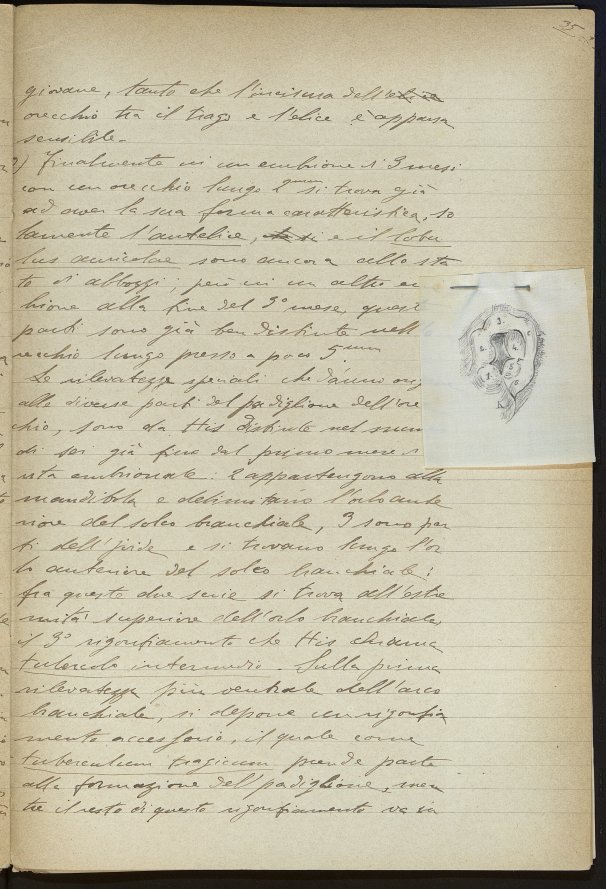 35
giovane, tanto che l'incisura dell'elice
orecchio tra il trago e l'elice è apparsa
sensibile.
) Finalmente in un embrione di 3 mesi
con un orecchio lungo 2 mm si trova già
ad aver la sua forma caratteristica, so
lamente l'antelice, e il lobu
lus auricolae sono ancora allo sta
to di abbozzi; però in un altro em
brione alla fine del 3° mese, quest
parti sono già ben distinte nell
recchio lungo presso a poco 5 mm
Le rilevatezze speciali che danno orig
alle diverse parti del padiglione dell'ore
chio, sono da His distinte nel num
di sei già fine dal primo mese di
vita embrionale: 2 appartengono alla
mandibola e delimitano l'orlo ante
riore del solco branchiale, 3 sono par
ti dell'joide e si trovano lungo l'or
lo anteriore del solco branchiale:
fra queste due serie si trova all'estre
mità superiore dell'orlo branchiale
il 3° rigonfiamento che His chiama
tubercolo intermedio. Sulla prima
rilevatezza più ventrale dell'arco
branchiale, si depone un rigonfia
mento accessorio, il quale come
tuberculum tragicum prende parte
alla formazione del padiglione, men
tre il resto di questo rigonfiamento va in
3.
2.
4.
c
1.
5
6
K